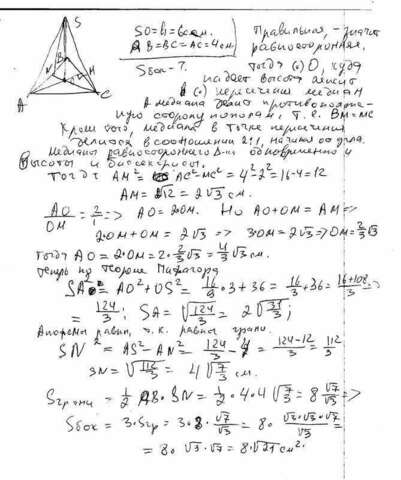 S
SO=H=6см.
AB=BC=AC=4см
Правильная, - значит
равносторонняя.
Sбок-?
Тогда (·) O, куда
падает высота лежит
в (·) пересечения медиан
А медиана делит противополож-
ную сторону пополам, т.е. BM=MC
Кроме того, медиана в точке пересечения
делится в соотношении 2:1, начиная от угла.
Медианы равностороннего Δ-ка обновременно и
Высоты и биссектрисы.
A
C
Тогда AM²= AC²-MC²=4²-2²=16-4=12
AM=√12=2√3 см.
AO/OM=2/1=> AO=2·OM. Но AO+OM=AM=>
2·OM+OM=2√3 => 3OM=2√3=>OM=2/3√3
Тогда AO=2·OM=2·2/3√3=4/3√3 см.
Теперь по Теореме Пифагора
SA²=AO²+OS²=16/9·3+36=16/3+36=(16+108)/3=>
=124/3; SA=√(124/3)=2√(31/3);
Апофемы равны, т.к. равны грани.
SN²=AS²-AN²=124/3-4=(124-12)/3=112/3
SN=√(112/3)=4√(7/3) см.
Sграни=1/2 AB·SN=1/2·4·4√(7/3)=8√7/√3=>
Sбок=3·Sгр=3·8·√7/√3=8·(√3·√3·√7)/√3=
=8·√3·√7=8·√21 см².